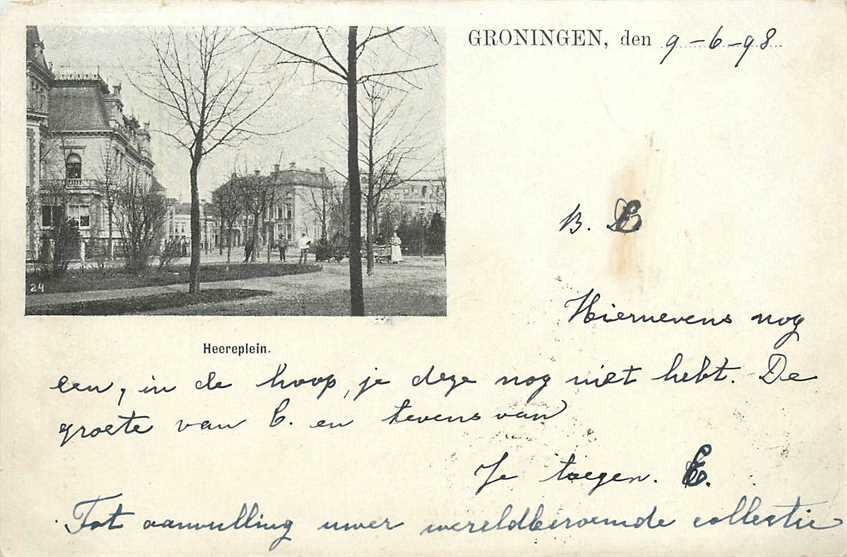 GRONINGEN, den 9-6-98
B. L
24
Heereplein.
Hiernevens nog
een, in de hoop, je deze nog niet hebt. De
groete van C. en tevens van
Je toegen. E.
Tot aanvulling uwer wereldberoemde collectie